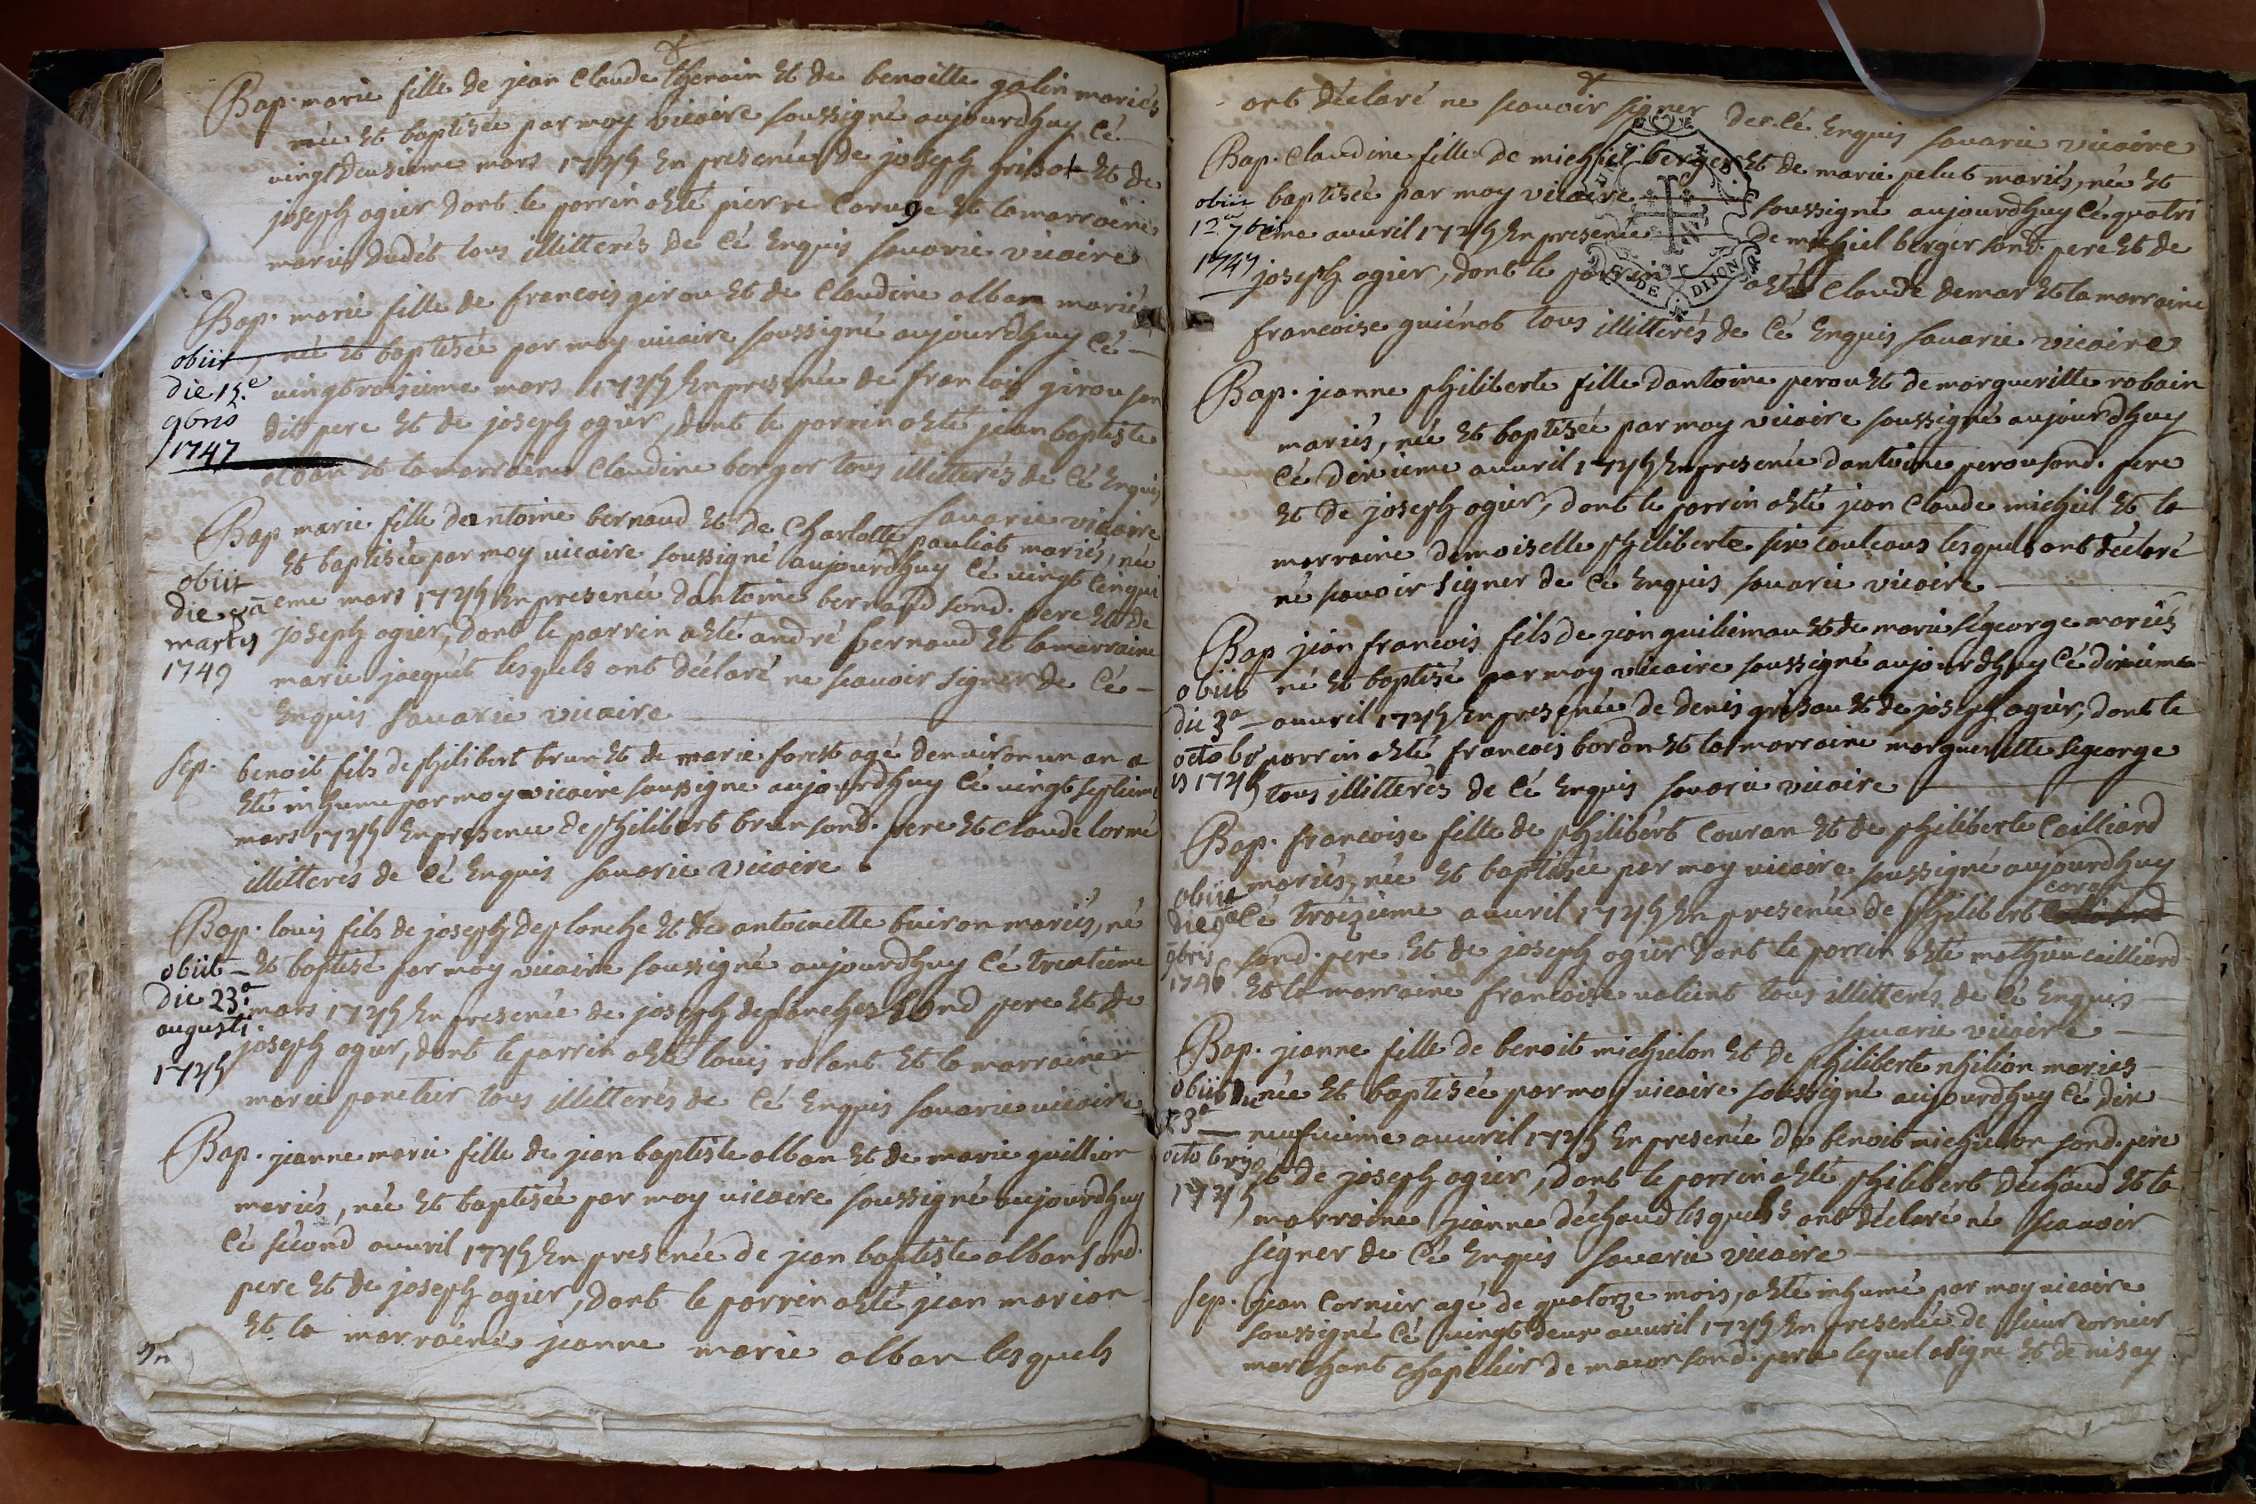 Bap. marie fille de jean Claude thenoin Et de benoitte galin mariés
née Et baptisée par moy vicaire soussigné aujourdhuy Cé
vingtdeusieme mars 1745 En presence de joseph grisot Et de
joseph ogier dont le parrin a Eté pierre Et la marraine
marie dudét tous illitterés de Cé Enquis savarie vicaire
Bap. marie fille de francois girou Et de Claudine alban mariés
née Et baptisée par moy vicaire soussigné aujourdhuy Cé
vingtroisieme mars 1745 En presence de francois girou son
dit pere Et de joseph ogier, dont le parrin a Eté jean baptiste
alban Et la marraine Claudine berger tous illitterés de Cé Enquis
savarie vicaire
obiit
die 15.e
9bris
1747
Bap marie fille dantoine bernaud Et de Charlotte pauliot mariés, née
Et baptisée par moy vicaire soussigné aujourdhuy Cé vingt Cinqui
eme mars 1745 En presence dantoine bernaud sond. pere Et de
joseph ogier, dont le parrin a Eté andré bernaud Et la marraine
marie jacquét lesquels ont déclaré ne scavoir signer de Cé
Enquis savarie vicaire
obiit
die
martis
1749
sep. benoit fils de philibert brun Et de marie forest agé denviron un an a
Eté inhumé par moy vicaire soussigné aujourdhuy Cé vingt septieme
mars 1745 En presence de philibert brun sond. pere Et Claude lormé
illitterés de Cé Enquis savarie vicaire
Bap. louis fils de joseph deplanche Et de antoinette buiron mariés, né
Et baptisé par moy vicaire soussigné aujourdhuy Cé trentieme
mars 1745 En presence de joseph deplanche sond pere Et de
joseph ogier, dont le parrin a Eté louis rolant Et la marraine
marie tous illitterés de Cé Enquis savarie vicaire
obiit
die 23.a
augusti
1745
Bap. jeanne marie fille de jean baptiste alban Et de marie guillion
mariés, née Et baptisée par moy vicaire soussigné aujourdhuy
Cé second avvril 1745 En presence de jean baptiste alban sond.
pere Et de joseph ogier, dont le parrin a Eté jean marion
Et la marraine jeanne marie alban lesquels
ont déclaré ne scavoir signer de Cé Enquis savarie vicaire
Bap. Claudine fille de michiel berger Et de marie pelut mariés, née Et
baptisée par moy vicaire soussigné aujourdhuy Cé quatri
eme avvril 1745 En presence de michiel berger sond. pere Et de
joseph ogier, dont le parrin a Eté Claude demar Et la marraine
francoise guiénot tous illitterés de Cé Enquis savarie vicaire
obiit
12.a 7bris
1747
DE DIJON
Bap. jeanne philiberte fille dantoine perou Et de margueritte robain
mariés, née Et baptisée par moy vicaire soussigné aujourdhuy
Cé dixieme avvril 1745 En presence dantoine perou sond. pere
Et de joseph ogier, dont le parrin a Eté jean Claude michiel Et la
marraine demoiselle philiberte lesquels ont déclaré
né scavoir signer de Cé Enquis savarie vicaire
Bap jean francois fils de jean guilieman Et de marie ségeorge mariés
né Et baptisé par moy vicaire soussigné aujourdhuy Cé dixieme
avvril 1745 En presence de denis grisau Et de joseph ogier, dont le
parrin a Eté francois boron Et la marraine margueritte segeorge
tous illitterés de Cé Enquis savarie vicaire
obiit
die 3.a
octobr
is 1745
Bap. francoise fille de philibért Couran Et de philiberte Cailliard
mariés, née Et baptisée par moy vicaire soussigné aujourdhuy
Cé troizieme avvril 1745 En presence de philibert coran
sond. pere Et de joseph ogier dont le parrin a Eté mathieu cailliard
Et la marraine francoise volient tous illitterés de Cé Enquis
savarie vicaire
obiit
die 9a
9bris
1746
Bap. jeanne fille de benoit michielon Et de philiberte mariés
née Et baptisée par moy vicaire soussigné aujourdhuy Cé dix
neufvieme avvril 1745 En presence de benoit michielon sond. pere
Et de joseph ogier, dont le parrin a Eté philibert déchaud Et la
marraine jeanne déchaud lesquels ont déclaré né scavoir
signer de Cé Enquis savarie vicaire
obiit die
23.a
octobris
1745
sep. jean Cornier agé de quatorze mois, a Eté inhumé par moy vicaire
soussigné Cé vingt deux avvril 1745 En presence de sieur cornier
marchant chapelier de macon sond. pere lequel a signé Et de nisay